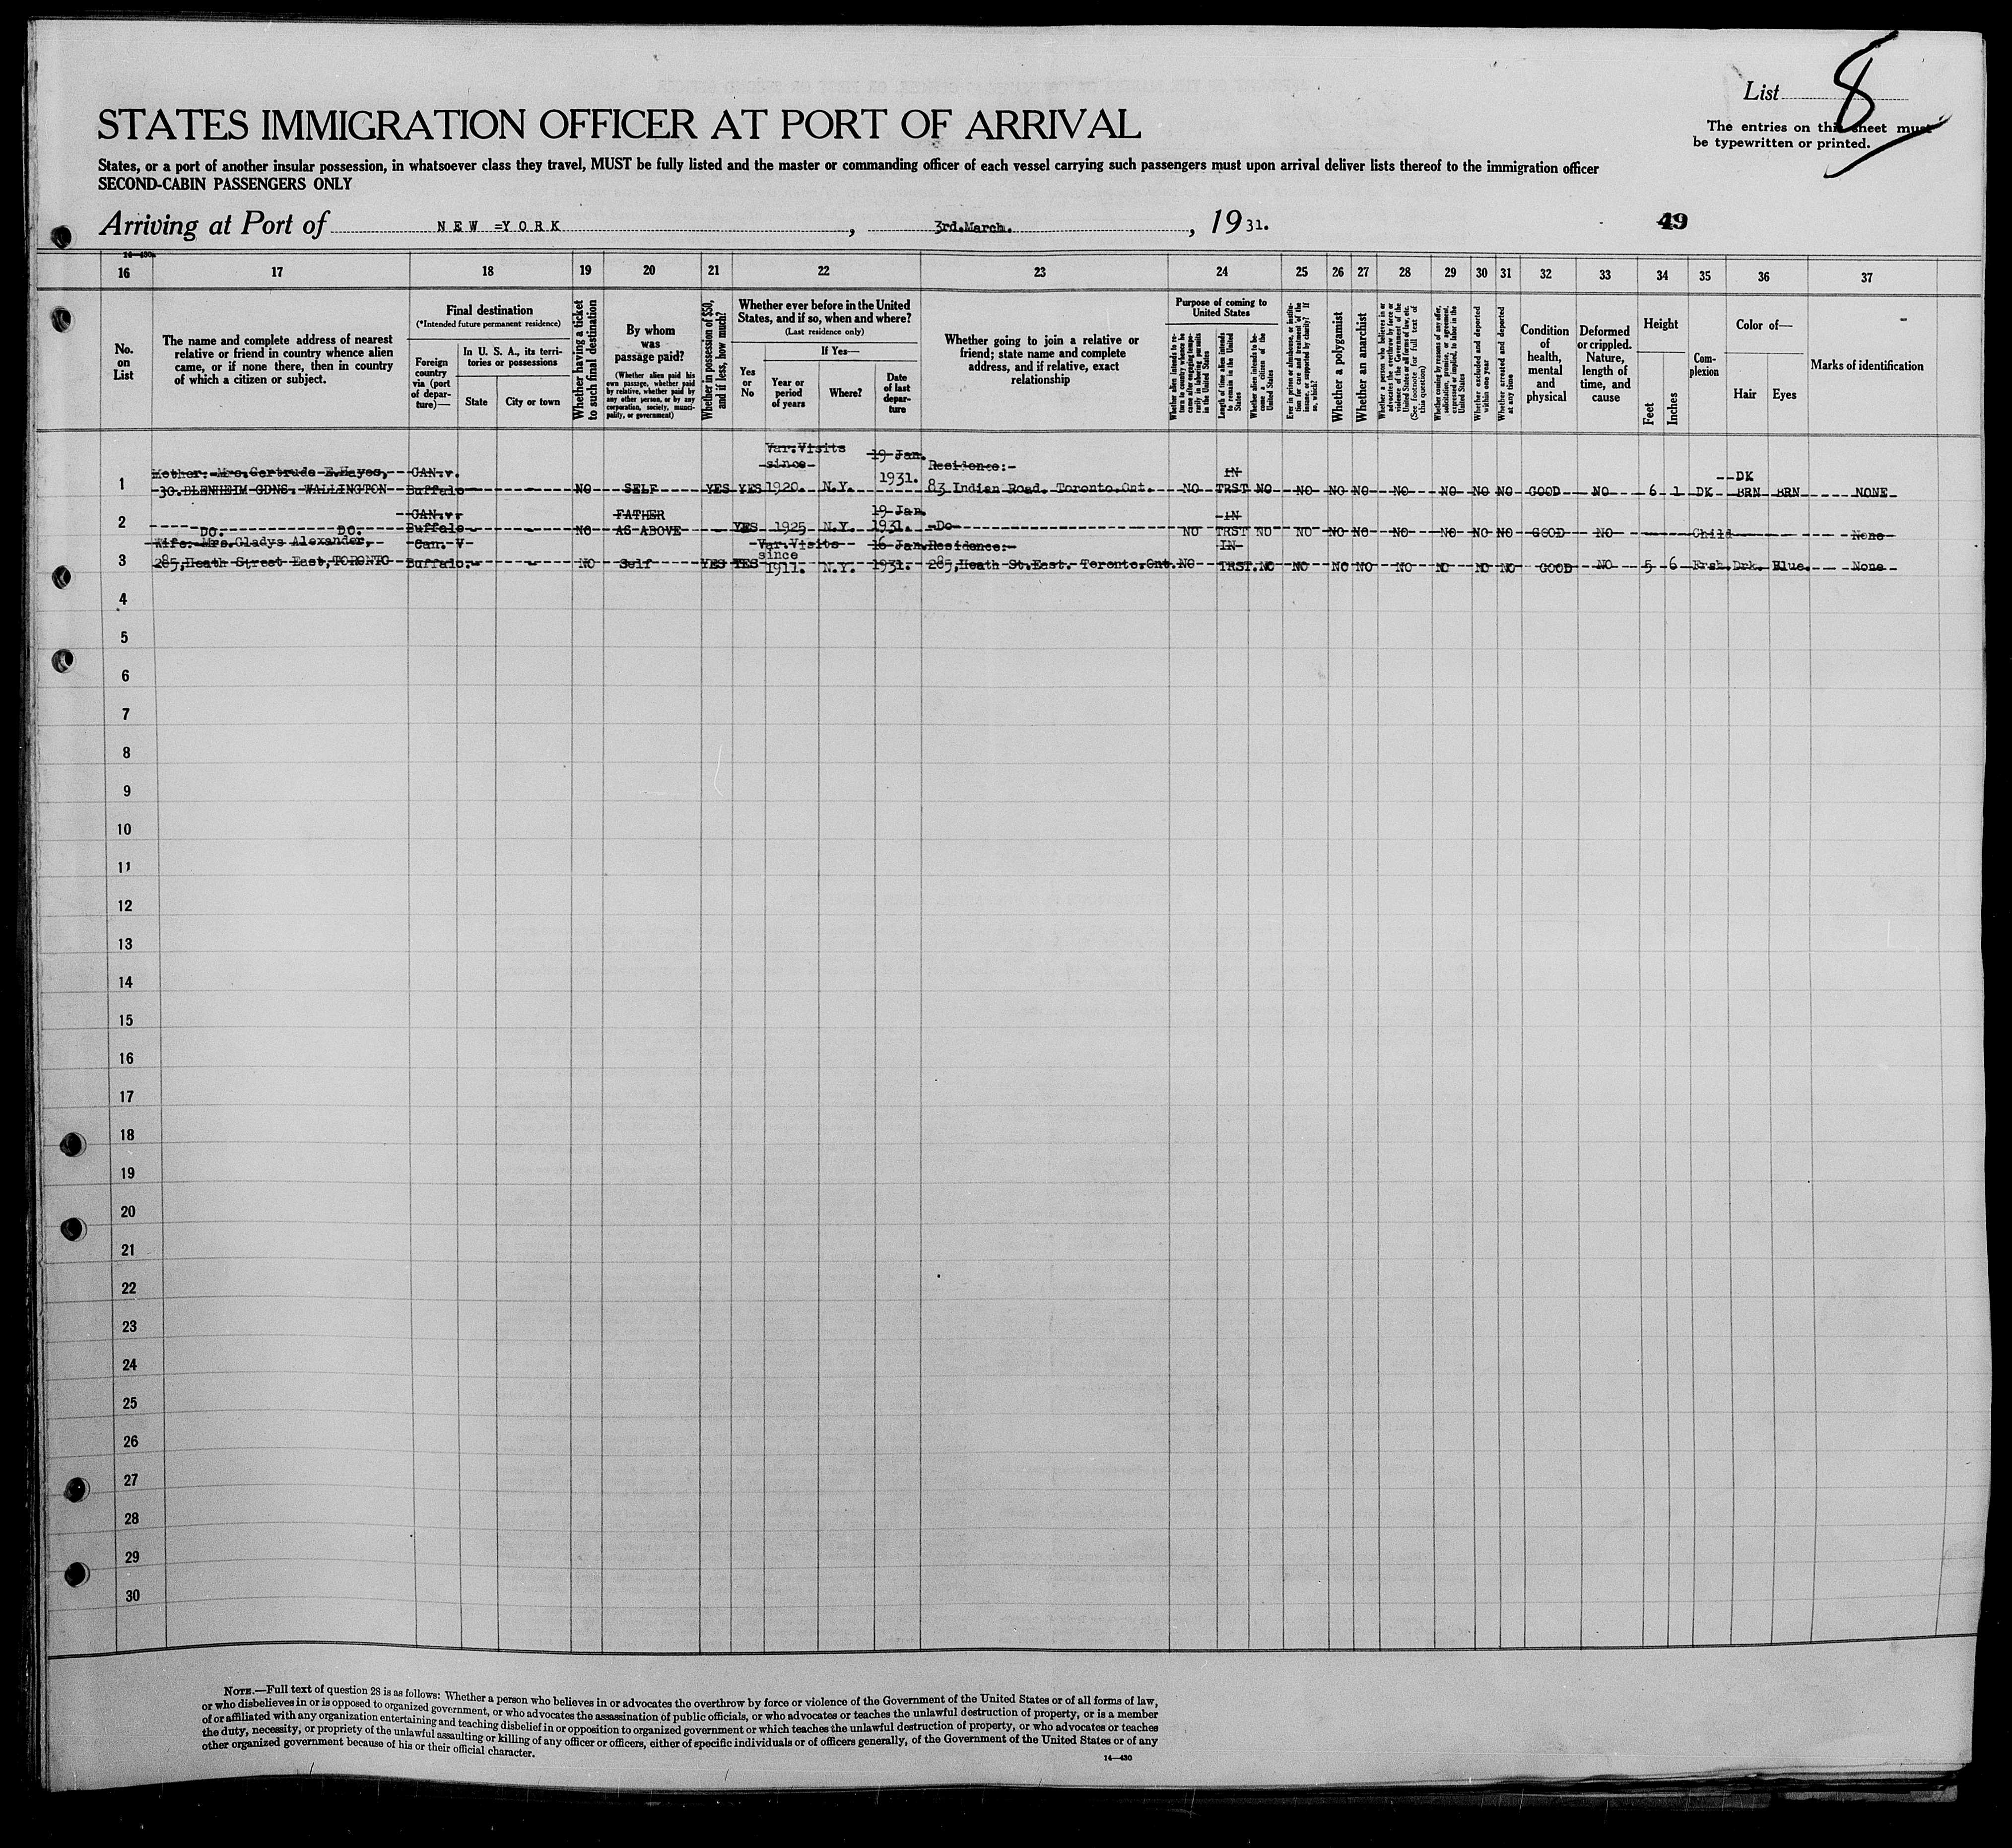 List 8
The entries on this sheet must
be typewritten or printed.
STATES IMMIGRATION OFFICER AT PORT OF ARRIVAL
States, or a port of another insular possession, in whatsoever class they travel, MUST be fully listed and the master or commanding officer of each vessel carrying such passengers must upon arrival deliver lists thereof to the immigration officer
SECOND-CABIN PASSENGERS ONLY
Arriving at Port of NEW =YORK, 3rd.March., 1931.
49
14—430
16 17 18 19 20 21 22 23 24 25 26 27 28 29 30 31 32 33 34 35 36 37
No. on List
The name and complete address of nearest
relative or friend in country whence alien
came, or if none there, then in country
of which a citizen or subject.
Final destination
(*Intended future permanent residence)
Foreign country via (port of departure)—
In U. S. A., its territories or possessions
State
City or town
Whether having a ticket to such final destination
By whom was passage paid?
(Whether alien paid his own passage, whether paid by relative, whether paid by any other person, or by any corporation, society, municipality, or government)
Whether in possession of $50, and if less, how much?
Whether ever before in the United
States, and if so, when and where?
(Last residence only)
Yes or No
If Yes—
Year or period of years
Where?
Date of last departure
Whether going to join a relative or
friend; state name and complete
address, and if relative, exact
relationship
Purpose of coming to United States
Whether alien intends to return to country whence he came after engaging temporarily in laboring pursuits in the United States
Length of time alien intends to remain in the United States
Whether alien intends to become a citizen of the United States
Ever in prison or almshouse, or institution for care and treatment of the insane, or supported by charity? If so, which?
Whether a polygamist
Whether an anarchist
Whether a person who believes in or advocates the overthrow by force or violence of the Government of the United States or all forms of law, etc. (See footnote for full text of this question)
Whether coming by reasons of any offer, solicitation, promise, or agreement, expressed or implied, to labor in the United States
Whether excluded and deported within one year
Whether arrested and deported at any time
Condition of health, mental and physical
Deformed or crippled. Nature, length of time, and cause
Height
Feet
Inches
Complexion
Color of—
Hair
Eyes
Marks of identification
Var.Visits 19 Jan.
Mother:-Mrs.Gertrude E.Hayes, CAN.v. since Residence:- IN DK
1 30.BLENHEIM GDNS. WALLINGTON Buffalo - - NO SELF YES YES 1920. N.Y. 1931. 83 Indian Road. Toronto.Ont. NO TRST NO NO NO NO NO NO NO NO GOOD NO 6 1 DK BRN BRN NONE
CAN.v. FATHER 19 Jan. IN
2 DO. DO. Buffalo - NO AS ABOVE - YES 1925 N.Y. 1931. -Do- NO TRST NO NO NO NO NO NO NO NO GOOD NO Child None
Wife:-Mrs.Gladys Alexander, Can. V Var.Visits since 16 Jan. Residence:- IN
3 285,Heath Street East,TORONTO Buffalo. - NO Self YES YES 1911. N.Y. 1931. 285,Heath St.East. Toronto.Ont. NO TRST. NO NO NO NO NO NO NO NO GOOD NO 5 6 Frsh. Drk. Blue. None
4
5
6
7
8
9
10
11
12
13
14
15
16
17
18
19
20
21
22
23
24
25
26
27
28
29
30
NOTE.—Full text of question 28 is as follows: Whether a person who believes in or advocates the overthrow by force or violence of the Government of the United States or of all forms of law,
or who disbelieves in or is opposed to organized government, or who advocates the assassination of public officials, or who advocates or teaches the unlawful destruction of property, or is a member
of or affiliated with any organization entertaining and teaching disbelief in or opposition to organized government or which teaches the unlawful destruction of property, or who advocates or teaches
the duty, necessity, or propriety of the unlawful assaulting or killing of any officer or officers, either of specific individuals or of officers generally, of the Government of the United States or of any
other organized government because of his or their official character.
14—430